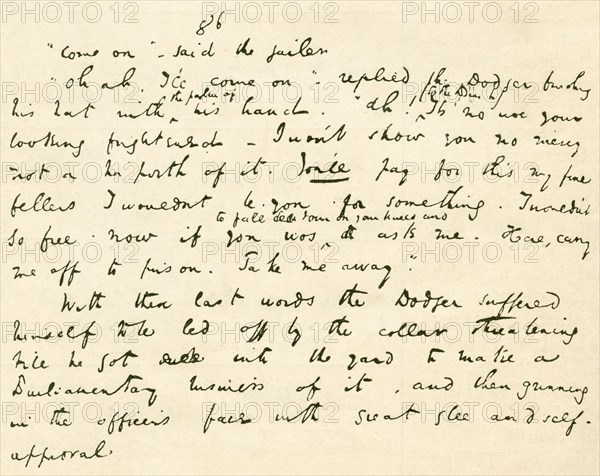 86
"Come on" - said the jailer
"Oh ah. I'll come on" - replied the Dodger brushing
the palm of to the Bench
his hat with his hand. "Ah! It's no use your
looking frightened - I won't show you no mercy
not a ha'porth of it. You'll pay for this my fine
fellers I wouldn't be you for something. I wouldn't
to fall down on your knees and
go free now if you wos ask me. Here, carry
me off to prison. Take me away".
With these last words the Dodger suffered
himself to be led off by the collar threatening
till he got into the yard to make a
Parliamentary business of it, and then grinning
in the officer's face with great glee and self-
approval.
PHOTO 12